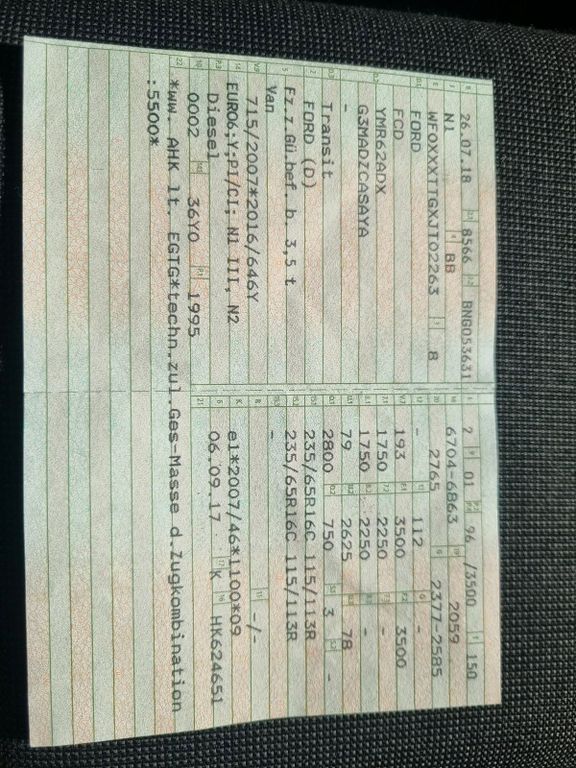 26.07.18 8566 BNG053631
N1 BB
WF0XXXTTGXJT02263 8
FORD
FCD
YMR62ADX
G3MADZCASAYA
-
Transit
FORD (D)
Fz.z.Gü.bef. b. 3,5 t
Van
715/2007*2016/646Y
EURO6;Y;PI/CI; N1 III, N2
Diesel
0002 36Y0 1995
*ww. AHK lt. EGTG*techn.zul.Ges-Masse d.Zugkombination
:5500*
2 01 96 /3500 150
6704-6863 2059
2765 2377-2585
- 112 -
193 3500 3500
1750 2250 -
1750 2250 -
79 2625 78
2800 750 3 -
235/65R16C 115/113R
235/65R16C 115/113R
-
-/-
e1*2007/46*1100*09
06.09.17 K HK624651